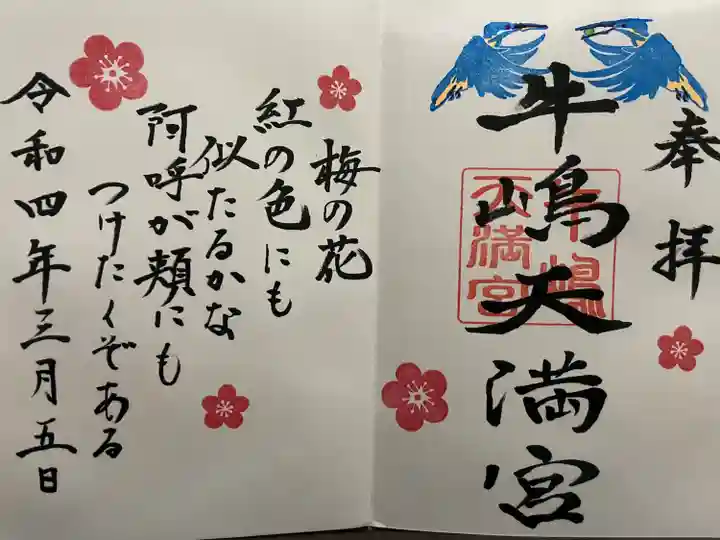 奉拝
牛嶋天満宮
牛嶋
天満宮
梅の花
紅の色にも
似たるかな
阿呼が頬にも
つけたくぞある
令和四年三月五日